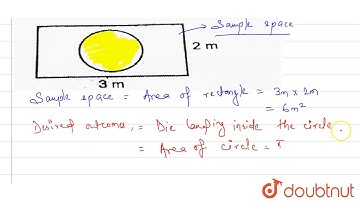 Sample space
2 m
3 m
Sample space = Area of rectangle = 3m x 2m
= 6m²
Desired outcomes, = Die landing inside the circle.
= Area of circle = π
doubtnut